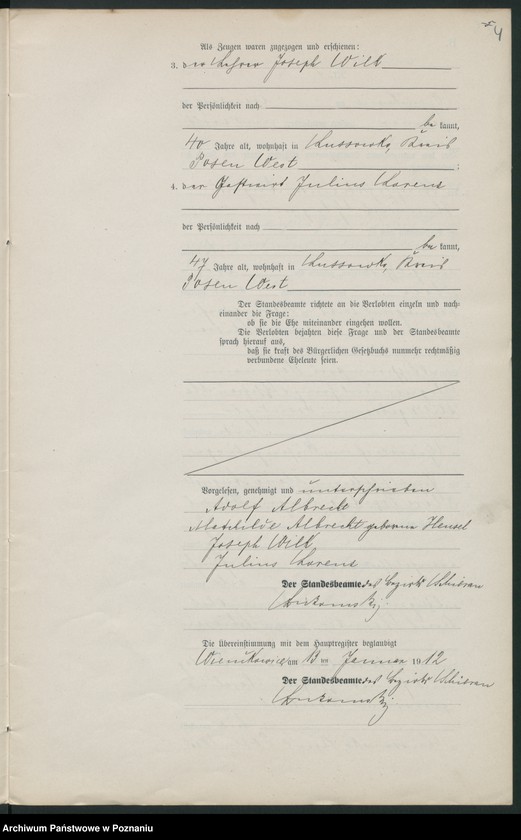 4
Als Zeugen waren zugezogen und erschienen:
3. der Lehrer Joseph Wilk
der Persönlichkeit nach
be kannt,
40 Jahre alt, wohnhaft in Kreis
Posen West ;
4. der Gastwirt Julius Lorenz
der Persönlichkeit nach
be kannt,
47 Jahre alt, wohnhaft in Kreis
Posen West
Der Standesbeamte richtete an die Verlobten einzeln und nach-
einander die Frage:
ob sie die Ehe miteinander eingehen wollen.
Die Verlobten bejahten diese Frage und der Standesbeamte
sprach hierauf aus,
daß sie kraft des Bürgerlichen Gesetzbuchs nunmehr rechtmäßig
verbundene Eheleute seien.
Vorgelesen, genehmigt und unterschrieben
Adolf Albrecht
Mathilde Albrecht geborene Hensel
Joseph Wilk
Julius Lorenz
Der Standesbeamte des Bezirks
Die Übereinstimmung mit dem Hauptregister beglaubigt
am Januar 1912
Der Standesbeamte des Bezirks
Archiwum Państwowe w Poznaniu